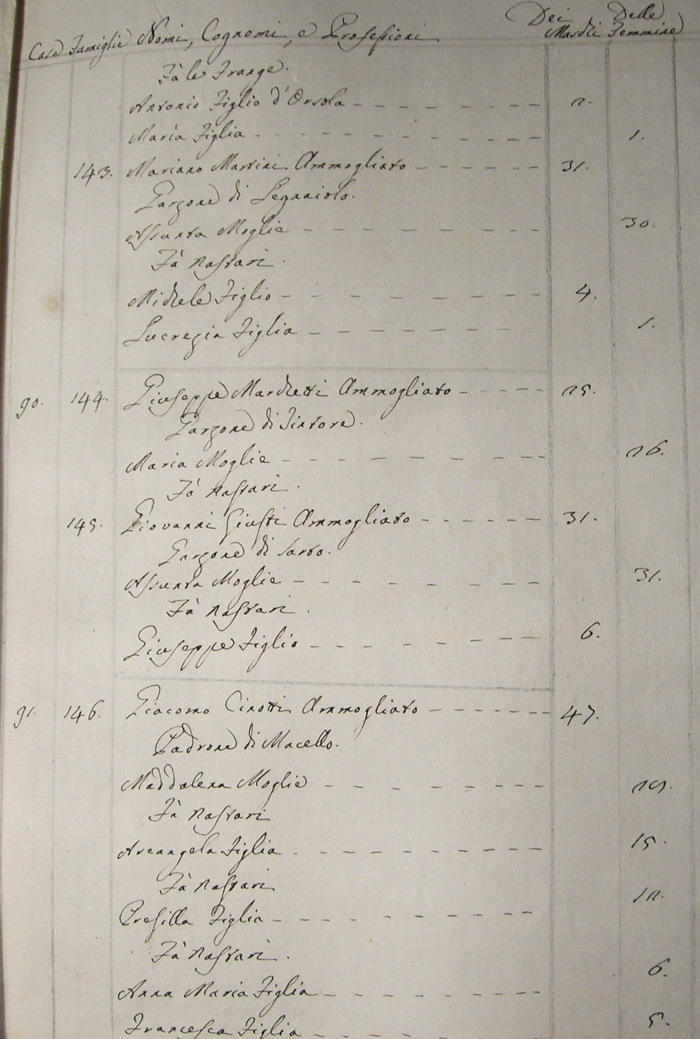 Case Famiglie Nomi, Cognomi, e Professioni Dei Maschi Delle Femmine
Fà le Frange.
Antonio Figlio d'Orsola 2.
Maria Figlia 1.
143. Mariano Martini Ammogliato 31.
Garzone di Legnaiolo.
Assunta Moglie 30.
Fà Nastari.
Michele Figlio 4.
Lucrezia Figlia 1.
90. 144. Giuseppe Marchetti Ammogliato 25.
Garzone di Tintore.
Maria Moglie 26.
Fà Nastari.
145. Giovanni Giusti Ammogliato 31.
Garzone di Sarto.
Assunta Moglie 31.
Fà Nastari.
Giuseppe Figlio 6.
91. 146. Giacomo Cinotti Ammogliato 47.
Padrone di Macello.
Maddalena Moglie
Fà Nastari
Arcangela Figlia 15.
Fà Nastari
Presilla Figlia 12.
Fà Nastari.
Anna Maria Figlia 6.
Francesca Figlia 5.